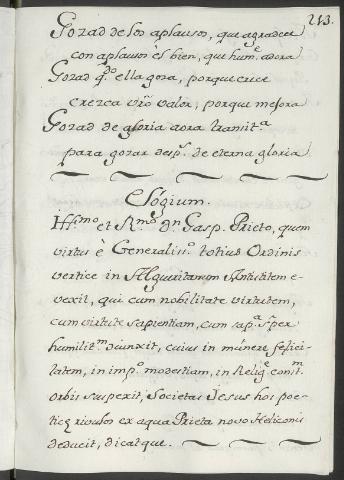 213.
Gozad de los aplausos, que agradece
con aplausos es bien, que hum.e adora
Gozad q.do ella goza, porque crece
crezca vr̃o valor, porque mejora
Gozad de gloria aora transit.a
para gozar desp.s de eterna gloria.
Elógium.
Ill.mo et R.mo D.n Gasp. Prieto, quem
virtus è Generalis.o totius Ordinis
vertice in Algueritanam Antistitem e-
vexit, qui cum nobilitate virtutem,
cum virtute sapientiam, cum sap.a super
humilit.m adiunxit, cuius in múnere felici-
tatem, in imp.o modestiam, in Relig.e const.m
Orbis suspexit, Societas Iesus hos poe-
ticos rivulos ex aqua Prieta novo Heliconis
deducit, dicatque.